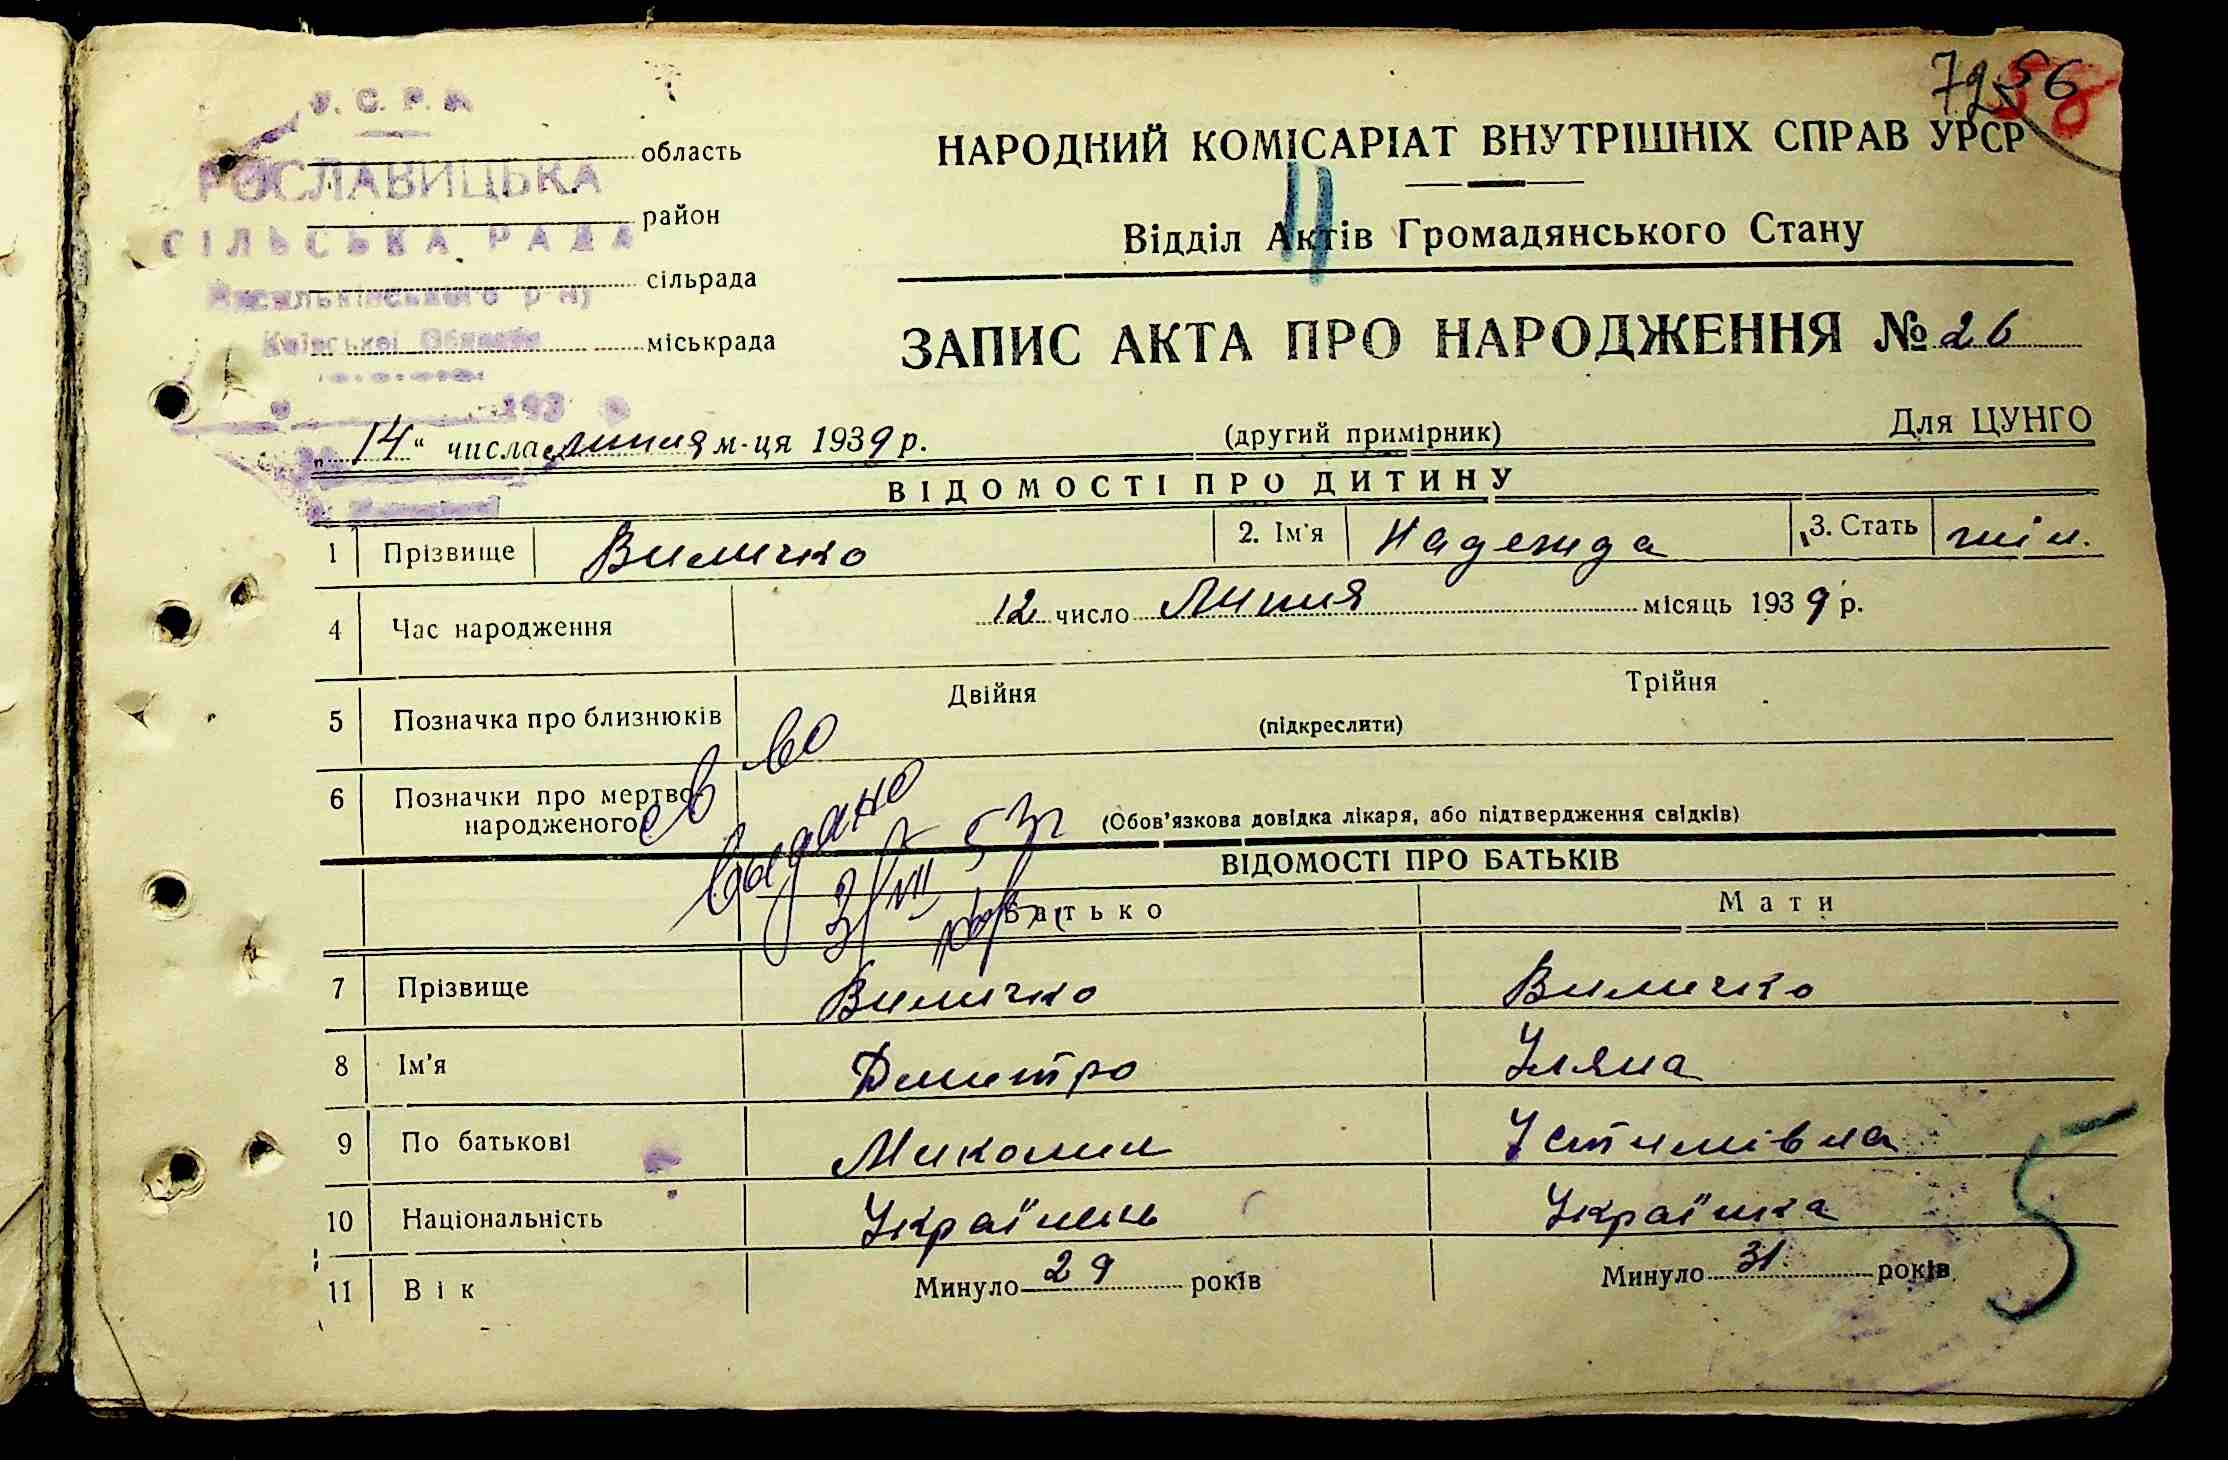 У.С.Р.Р.
область
РОСЛАВИЦЬКА
район
СІЛЬСЬКА РАДА
сільрада
Васильківського р-ну
Київської Області
міськрада
193
7256
58
НАРОДНИЙ КОМІСАРІАТ ВНУТРІШНІХ СПРАВ УРСР
11
Відділ Актів Громадянського Стану
ЗАПИС АКТА ПРО НАРОДЖЕННЯ № 26
„14" числа липня м-ця 1939 р.
(другий примірник)
Для ЦУНГО
ВІДОМОСТІ ПРО ДИТИНУ
1 Прізвище Виличко 2. Ім'я Надежда 3. Стать жін.
4 Час народження 12 число Липня місяць 1939 р.
5 Позначка про близнюків Двійня Трійня
(підкреслити)
6 Позначки про мертво-
народженого (Обов'язкова довідка лікаря, або підтвердження свідків)
св во
выдано
3/VII 53г
ВІДОМОСТІ ПРО БАТЬКІВ
Батько Мати
7 Прізвище Виличко Виличко
8 Ім'я Дмитро Уляна
9 По батькові Миколин Устимівна
10 Національність Українець Українка
11 Вік Минуло 29 років Минуло 31 років
5